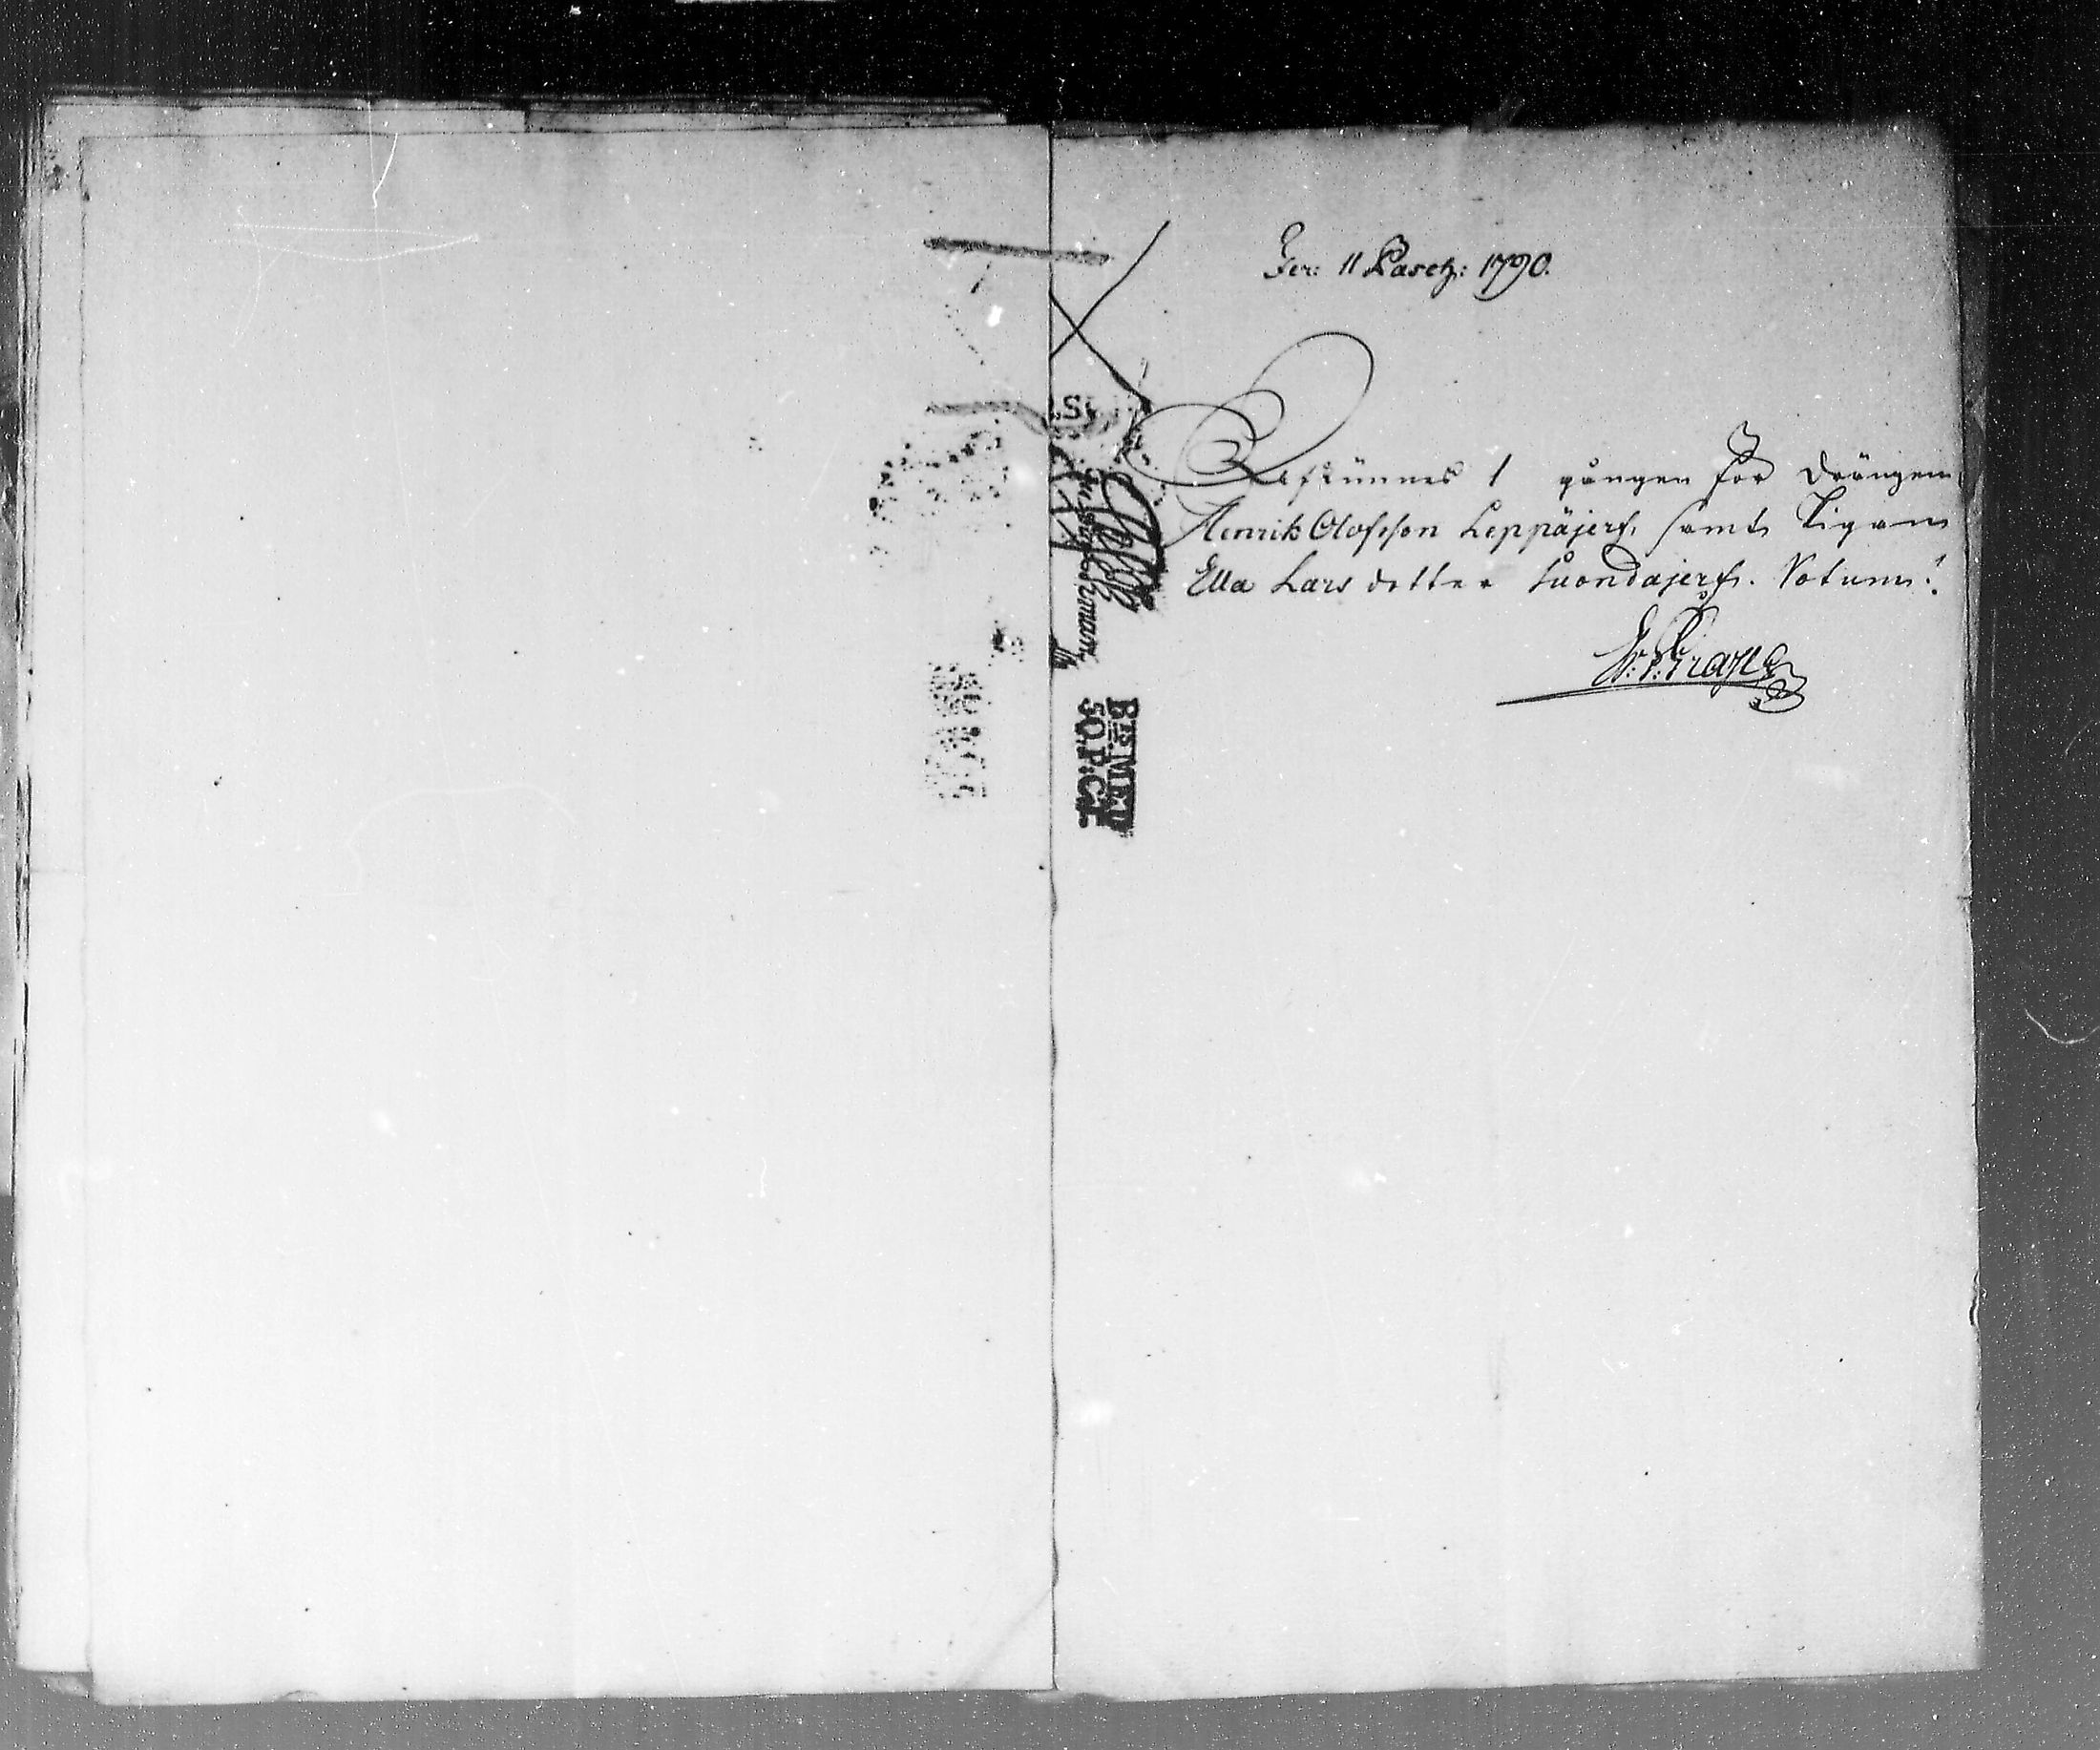 Fer: 11 Pasch: 1790.
Afkünnes 1 gången för Drängen
Henrik Olofsson Leppäjerf, samt Pigan
Ella Lars dotter Luondajerf. Votum!
BTS MED
50. P:C:T.